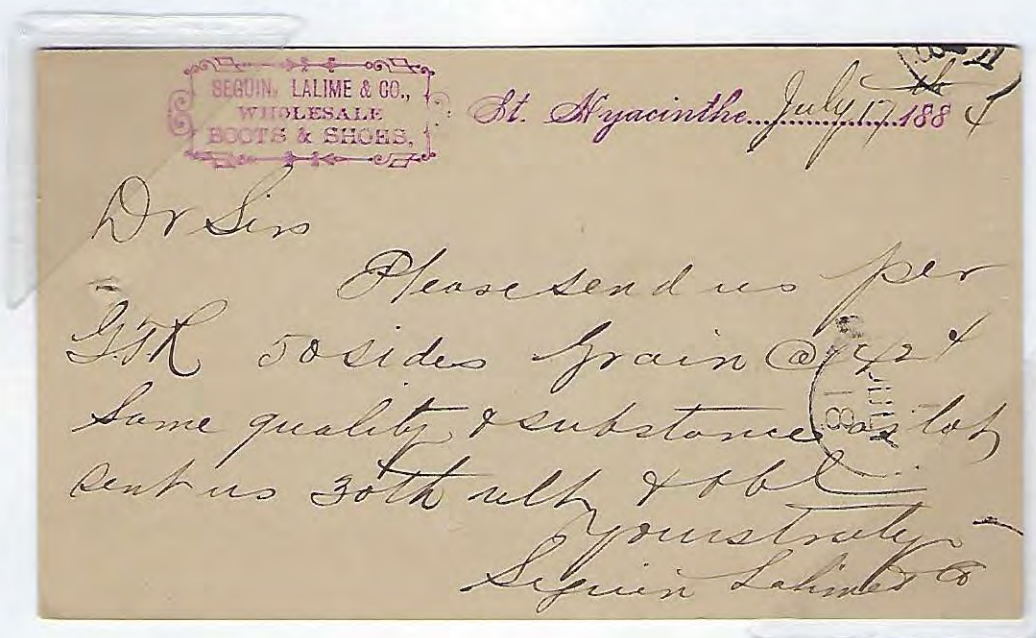 SEGUIN, LALIME & CO.,
WHOLESALE
BOOTS & SHOES,
St. Hyacinthe July 17 1884
Dr Sirs
Please send us per
GTR 50 sides Grain @ 42 ¢
Same quality & substance as lot
sent us 30th ult & obl
Yours truly
Seguin Lalime & Co